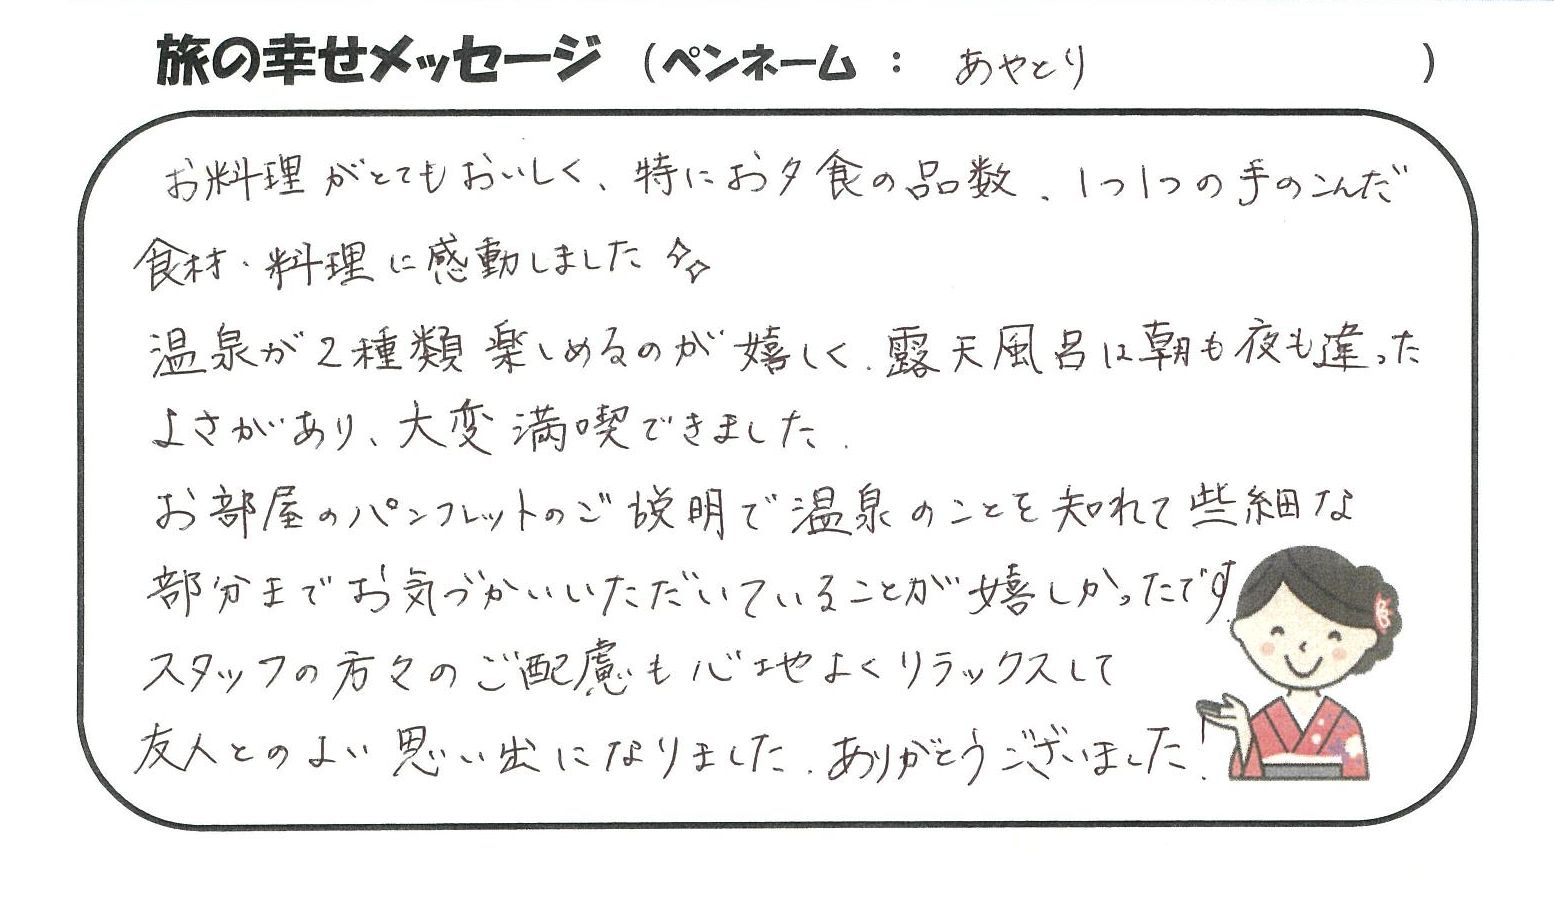 旅の幸せメッセージ (ペンネーム : あやとり )
お料理がとてもおいしく、特にお夕食の品数、1つ1つの手のこんだ
食材・料理に感動しました✧✧
温泉が2種類楽しめるのが嬉しく、露天風呂は朝も夜も違った
よさがあり、大変満喫できました.
お部屋のパンフレットのご説明で温泉のことを知れて些細な
部分までお気づかいいただいていることが嬉しかったです.
スタッフの方々のご配慮も心地よくリラックスして
友人とのよい思い出になりました.ありがとうございました!